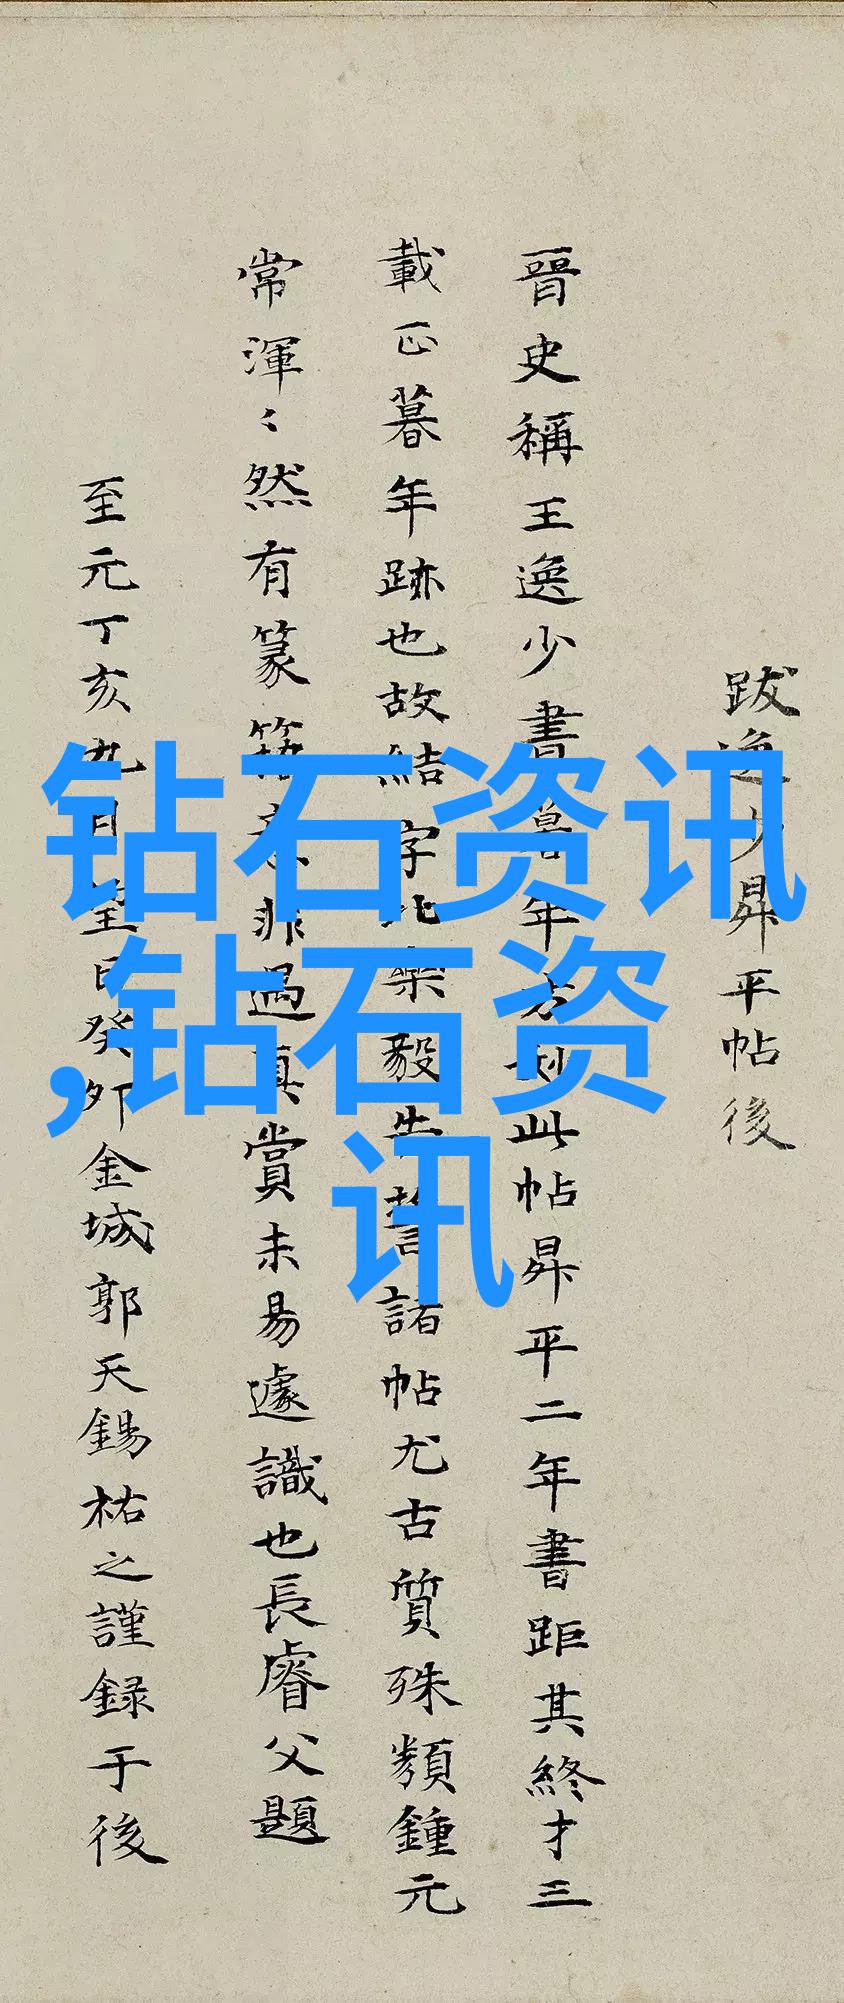 跋逸少昇平帖後
晉史稱王逸少書暮年方妙此帖昇平二年書距其終才三
載正暮年跡也故結字比樂毅告誓諸帖尤古質殊類鍾元
常渾〻然有篆籀意非遇真賞未易遽識也長睿父題
至元丁亥九月望日癸卯金城郭天錫祐之謹録于後
钻石资讯
,钻石资
讯